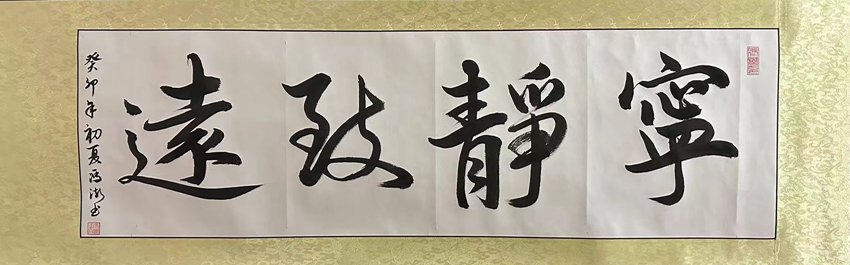 寧靜致遠
癸卯年初夏馮沛書